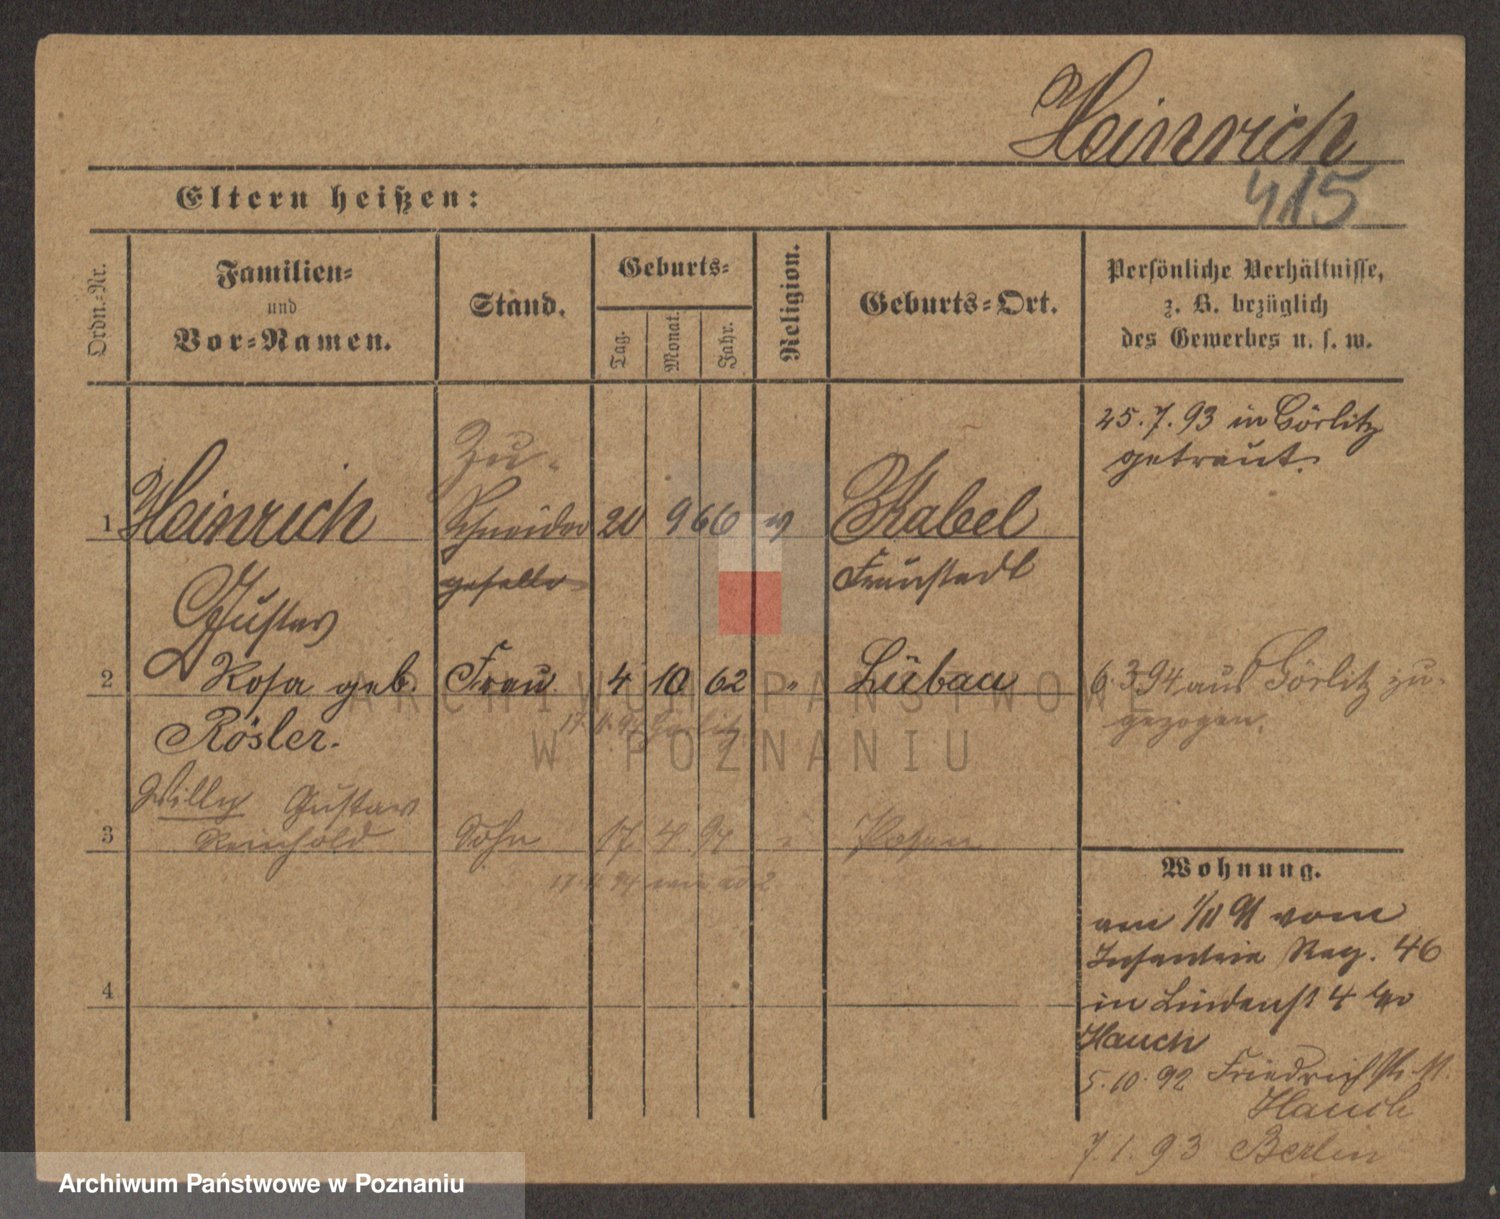 Heinrich
415
Eltern heißen:
Ordn.-Nr.
Familien-
und
Vor-Namen.
Stand.
Geburts-
Tag.
Monat.
Jahr.
Religion.
Geburts-Ort.
Persönliche Verhältnisse,
z. B. bezüglich
des Gewerbes u. s. w.
25.7.93 in Görlitz
getraut.
Zu-
1 Heinrich Schneider 20 9 66 Kabel
geselle Fraustadt
Gustav
2 Rosa geb. Frau 4 10 62 " Lübau
Rösler.
6.3.94 aus Görlitz zu-
gezogen.
17.4.94 Görlitz
Willy Gustav
3 Reinhold Sohn 17 4 94 Posen
17.4.94 wie ad 2
Wohnung.
am vom
Infanterie Reg. 46
in Lindenst 4 bei
Hauch
5.10.92 Friedrichstr
Hauch
7 1. 93 Berlin
4
ARCHIWUM PAŃSTWOWE
W POZNANIU
Archiwum Państwowe w Poznaniu